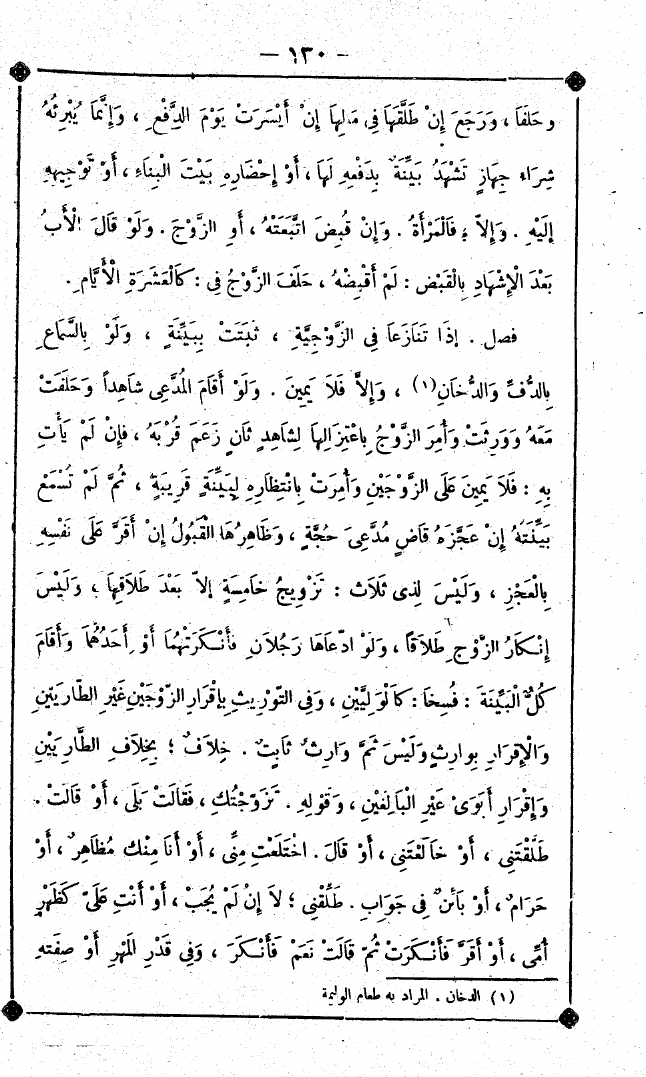 — ١٣٠ —
وحَلَفَا ، وَرَجَعَ إِنْ طَلَّقَهَا فِي مَالِهَا إِنْ أَيْسَرَتْ يَوْمَ الدَّفْعِ ، وَإِنَّمَا يُبْرِئُهُ
شِرَاءِ جِهَازٍ تَشْهَدُ بَيِّنَةٌ بِدَفْعِهِ لَهَا ، أَوْ إِحْضَارِهِ بَيْتَ الْبِنَاءِ ، أَوْ تَوْجِيهِهِ
إِلَيْهِ . وَإِلاَّ ؛ فَالْمَرْأَةُ . وَإِنْ قُبِضَ اتَّبَعَتْهُ ، أَوِ الزَّوْجَ . وَلَوْ قَالَ الْأَبُ
بَعْدَ الْإِشْهَادِ بِالْقَبْضِ : لَمْ أَقْبِضْهُ ، حَلَفَ الزَّوْجُ فِي : كَالْعَشَرَةِ الْأَيَّامِ .
فصل . إِذَا تَنَازَعَا فِي الزَّوْجِيَّةِ ، ثَبَتَتْ بِبَيِّنَةٍ ، وَلَوْ بِالسَّمَاعِ
بِالدُّفِّ وَالدُّخَانِ (١) ، وَإِلاَّ فَلاَ يَمِينَ . وَلَوْ أَقَامَ الْمُدَّعِي شَاهِداً وَحَلَفَتْ
مَعَهُ وَوَرِثَتْ وَأُمِرَ الزَّوْجُ بِاعْتِزَالِهَا لِشَاهِدٍ ثَانٍ زَعَمَ قُرْبَهُ ، فَإِنْ لَمْ يَأْتِ
بِهِ : فَلاَ يَمِينَ عَلَى الزَّوْجَيْنِ وَأُمِرَتْ بِانْتِظَارِهِ لِبَيِّنَةٍ قَرِيبَةٍ ، ثُمَّ لَمْ تُسْمَعْ
بَيِّنَتُهُ إِنْ عَجَّزَهُ قَاضٍ مُدَّعِيَ حُجَّةٍ ، وَظَاهِرُهَا الْقَبُولُ إِنْ أَقَرَّ عَلَى نَفْسِهِ
بِالْعَجْزِ ، وَلَيْسَ لِذِي ثَلاَثٍ : تَزْوِيجُ خَامِسَةٍ إِلاَّ بَعْدَ طَلاَقِهَا ؛ وَلَيْسَ
إِنْكَارُ الزَّوْجِ طَلاَقًا ، وَلَوْ ادَّعَاهَا رَجُلاَنِ فَأَنْكَرَتْهُمَا أَوْ أَحَدَهُمَا وَأَقَامَ
كُلٌّ الْبَيِّنَةَ : فُسِخَا : كَالْوَلِيَّيْنِ ، وَفِي التَّوْرِيثِ بِإِقْرَارِ الزَّوْجَيْنِ غَيْرِ الطَّارِيَيْنِ
وَالْإِقْرَارِ بِوَارِثٍ وَلَيْسَ ثَمَّ وَارِثٌ ثَابِتٌ . خِلَافٌ ؛ بِخِلَافِ الطَّارِيَيْنِ
وَإِقْرَارِ أَبَوَيْ غَيْرِ الْبَالِغَيْنِ ، وَقَوْلِهِ . تَزَوَّجْتُكِ ، فَقَالَتْ بَلَى ، أَوْ قَالَتْ .
طَلَّقْتَنِي ، أَوْ خَالَعْتَنِي ، أَوْ قَالَ . اخْتَلَعْتِ مِنِّي ، أَوْ أَنَا مِنْكِ مُظَاهِرٌ ، أَوْ
حَرَامٌ ، أَوْ بَائِنٌ فِي جَوَابِ . طَلِّقْنِي ؛ لاَ إِنْ لَمْ يُجَبْ ، أَوْ أَنْتِ عَلَيَّ كَظَهْرِ
أُمِّي ، أَوْ أَقَرَّ فَأَنْكَرَتْ ثُمَّ قَالَتْ نَعَمْ فَأَنْكَرَ ، وَفِي قَدْرِ الْمَهْرِ أَوْ صِفَتِهِ
(١) الدخان . المراد به طعام الوليمة